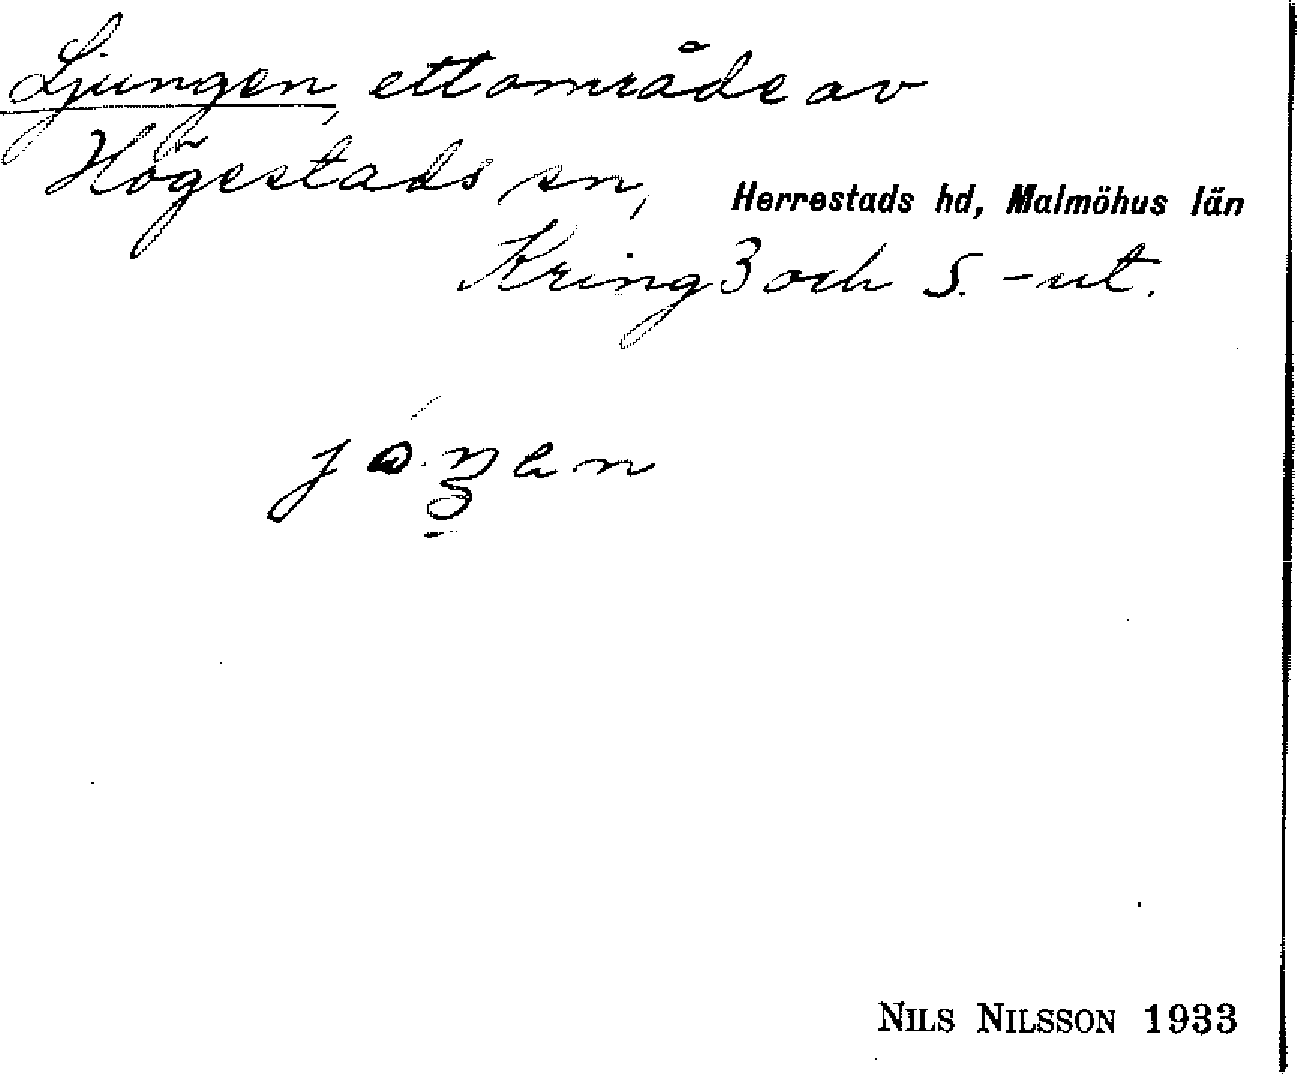 Ljungen, ett område av
Högestads sn, Herrestads hd, Malmöhus län
Kring 3 och 5. -ut.
NILS NILSSON 1933